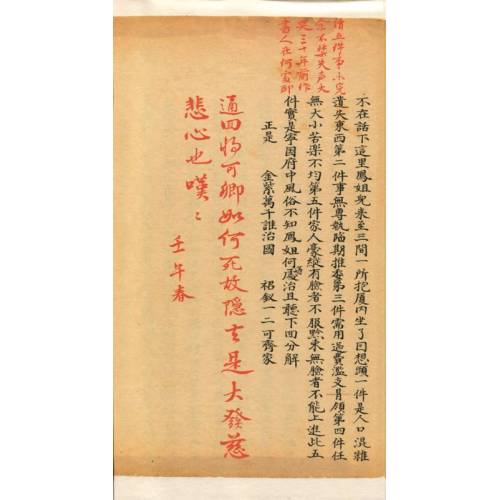 讀五件事未完
余不禁失声大
哭三十年前作
書人在何處耶
不在話下這里鳳姐兒来至三間一所抱厦内坐了因想頭一件是人口混雜
遺失東西第二件事無專執臨期推委第三件需用過費濫支冐領第四件任
無大小苦樂不均第五件家人豪縱有臉者不服黔束無臉者不能上進此五
件實是寧国府中風俗不知鳳姐何處治且聽下回分解
正是 金紫萬千誰治國 裙釵一二可齊家
通回將可卿如何死故隐去是大發慈
悲心也嘆〻
壬午春